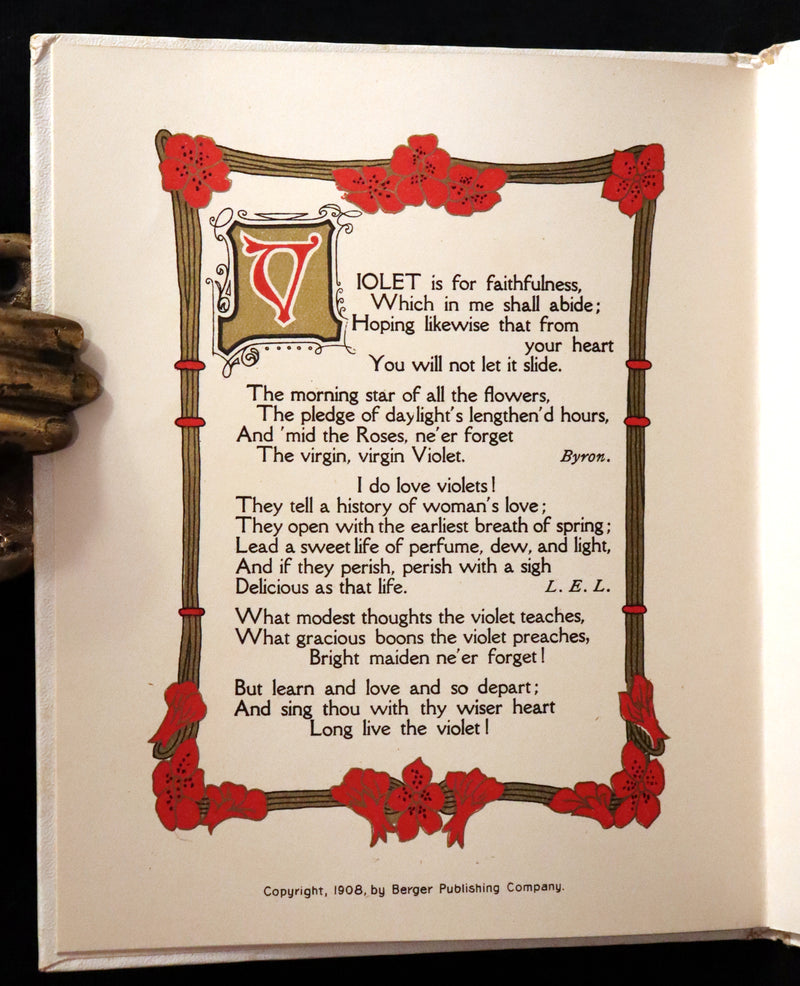 VIOLET is for faithfulness,
Which in me shall abide;
Hoping likewise that from
your heart
You will not let it slide.
The morning star of all the flowers,
The pledge of daylight's lengthen'd hours,
And 'mid the Roses, ne'er forget
The virgin, virgin Violet. Byron.
I do love violets!
They tell a history of woman's love;
They open with the earliest breath of spring;
Lead a sweet life of perfume, dew, and light,
And if they perish, perish with a sigh
Delicious as that life. L. E. L.
What modest thoughts the violet teaches,
What gracious boons the violet preaches,
Bright maiden ne'er forget!
But learn and love and so depart;
And sing thou with thy wiser heart
Long live the violet!
Copyright, 1908, by Berger Publishing Company.